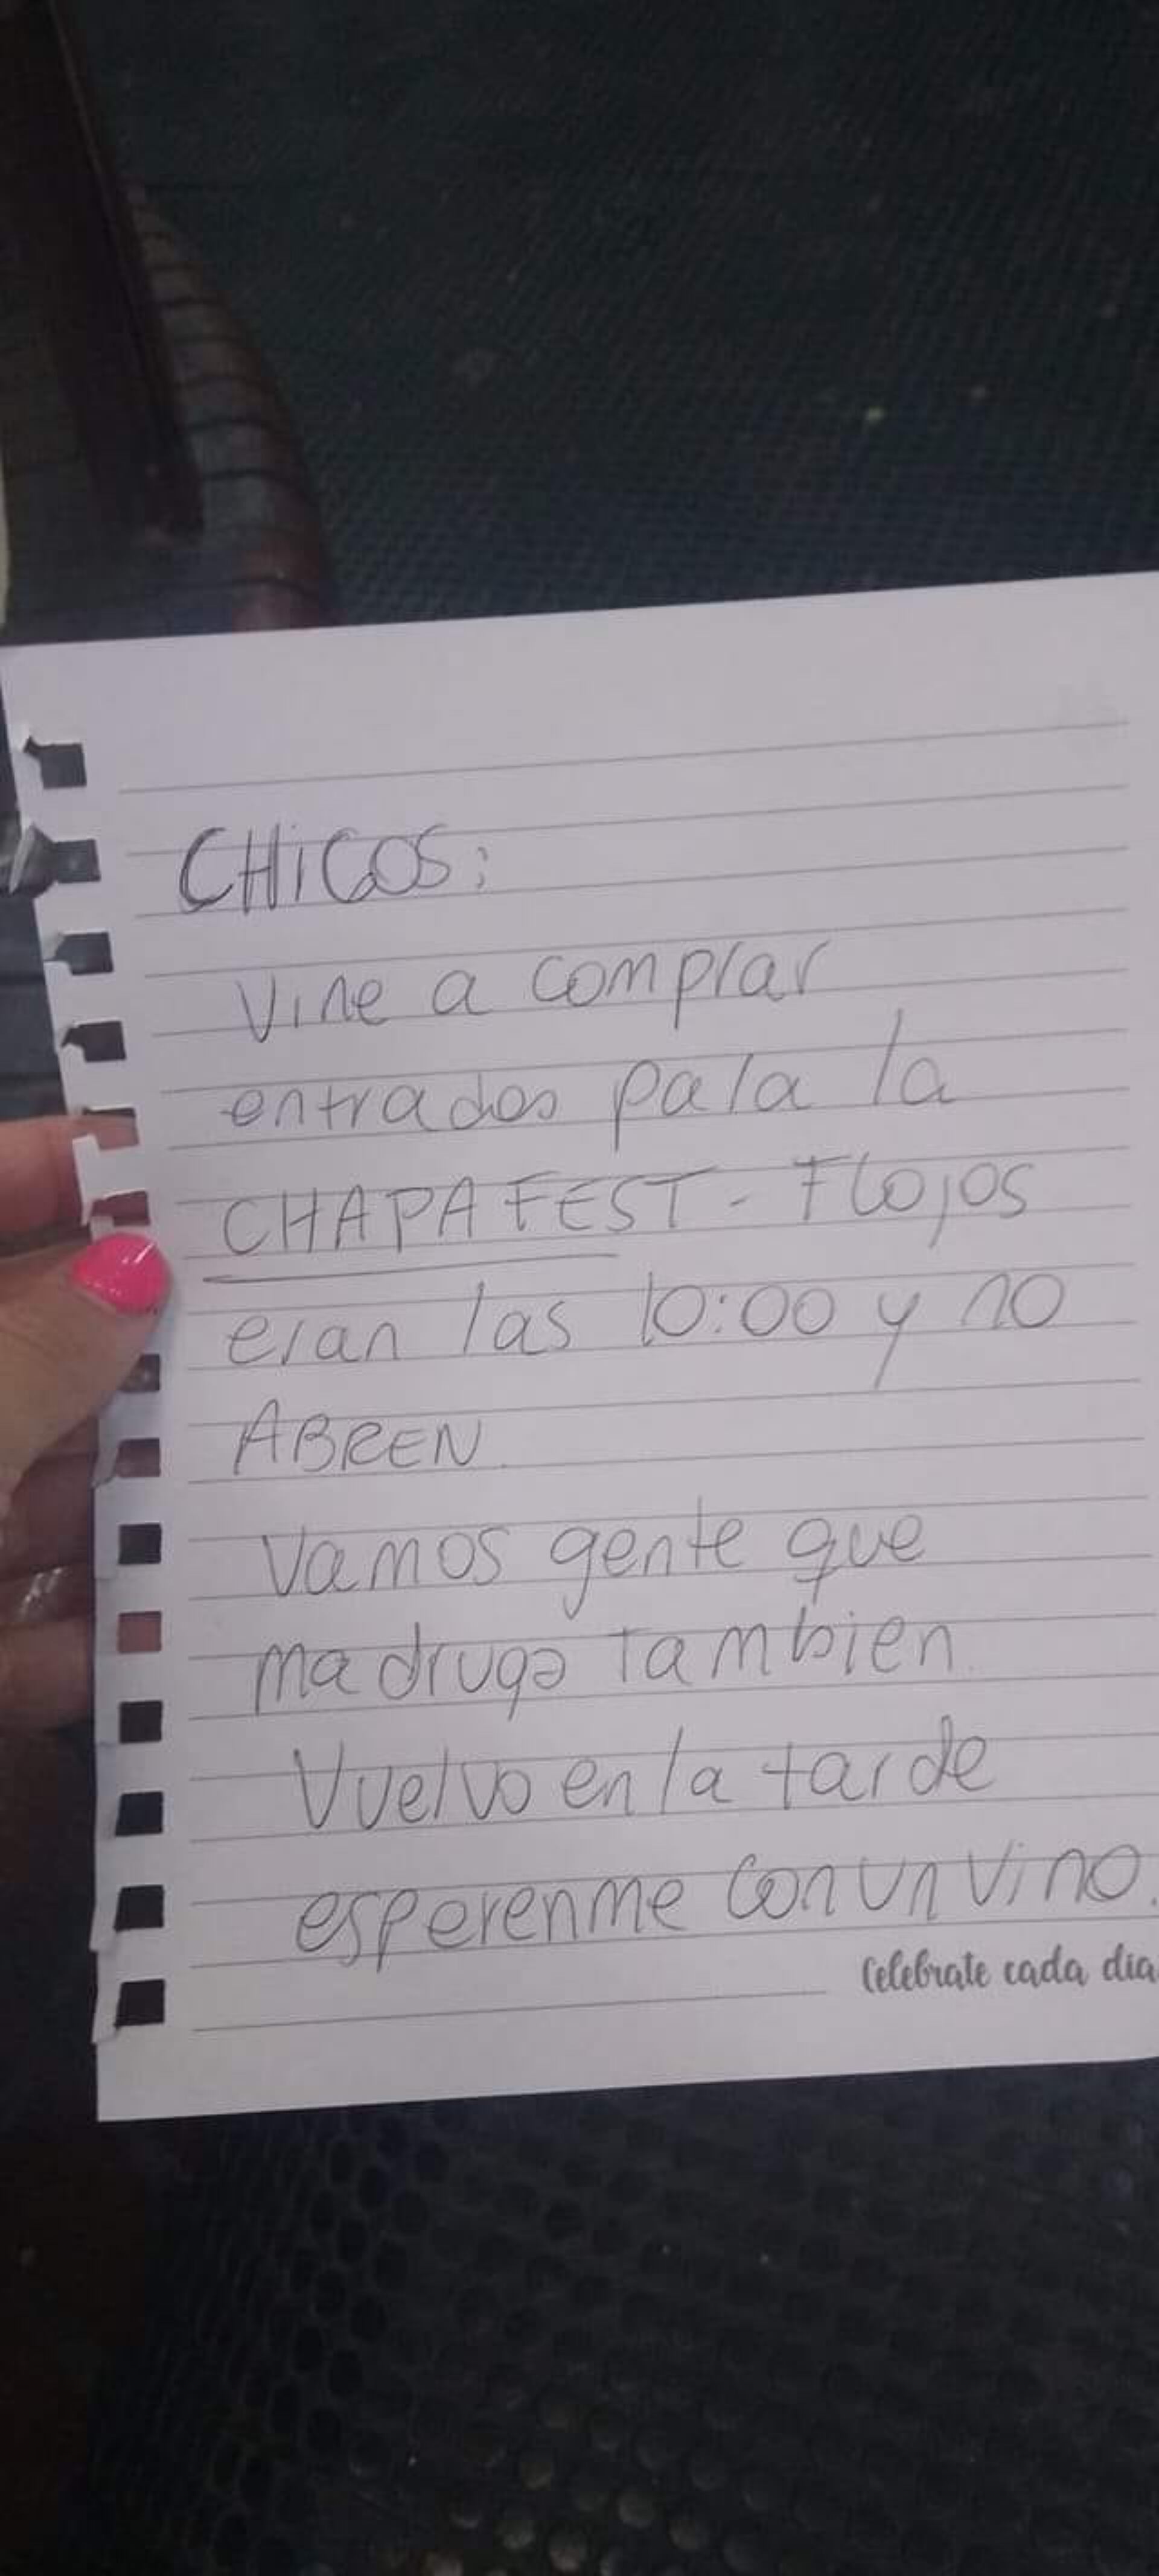 CHiCOS:
Vine a comprar
entradas para la
CHAPAFEST - Flojos
eran las 10:00 y no
ABREN.
Vamos gente que
madrugo tambien.
Vuelvo en la tarde
esperenme con un vino.
Celebrate cada dia